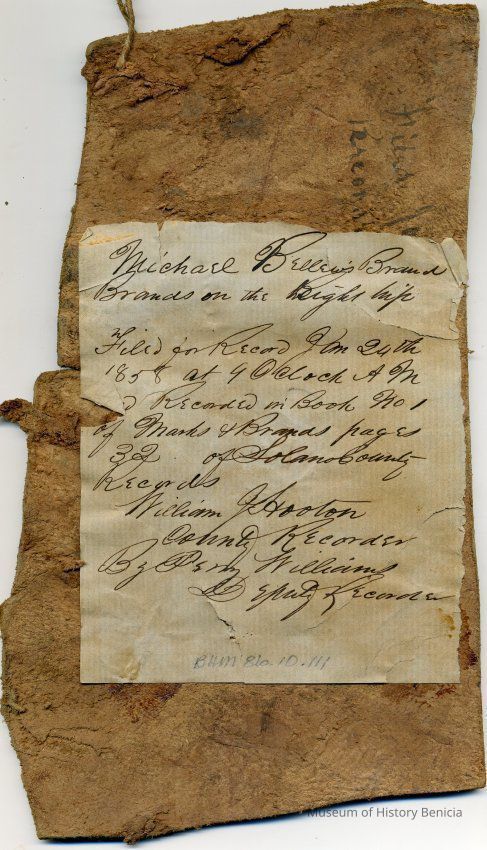 Filed
Record
Michael Bellew's Brand
Brands on the Right hip
Filed for Record Jan 24th
1858 at 9 O'Clock A M
d Recorded in Book No 1
of Marks & Brands pages
32 of Solano County
Records
William J Hooton
County Recorder
By Perry Williams
Deputy Recorder
BHM 86.10.111
Museum of History Benicia